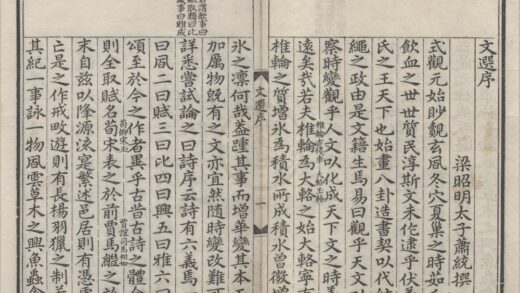 文選序
梁昭明太子蕭統撰
式觀元始眇覿玄風冬穴夏巢之時茹
飲血之世世質民淳斯文未作逮乎伏
氏之王天下也始畫八卦造書契以代結
繩之政由是文籍生焉易曰觀乎天文
察時變觀乎人文以化成天下文之時
遠矣哉若夫椎輪為大輅之始大輅寧
椎輪之質增冰為積水所成積水曾微
文選序
一
冰之凜何哉蓋踵其事而增華變其本
加厲物既有之文亦宜然隨時變改難
詳悉嘗試論之曰詩序云詩有六義焉
曰風二曰賦三曰比四曰興五曰雅六
頌至於今之作者異乎古昔古詩之體
則全取賦名荀宋表之於前賈馬繼之
末自茲以降源流寔繁述邑居則有憑
亡是之作戒畋遊則有長楊羽獵之制
其紀一事詠一物風雲草木之興魚蟲